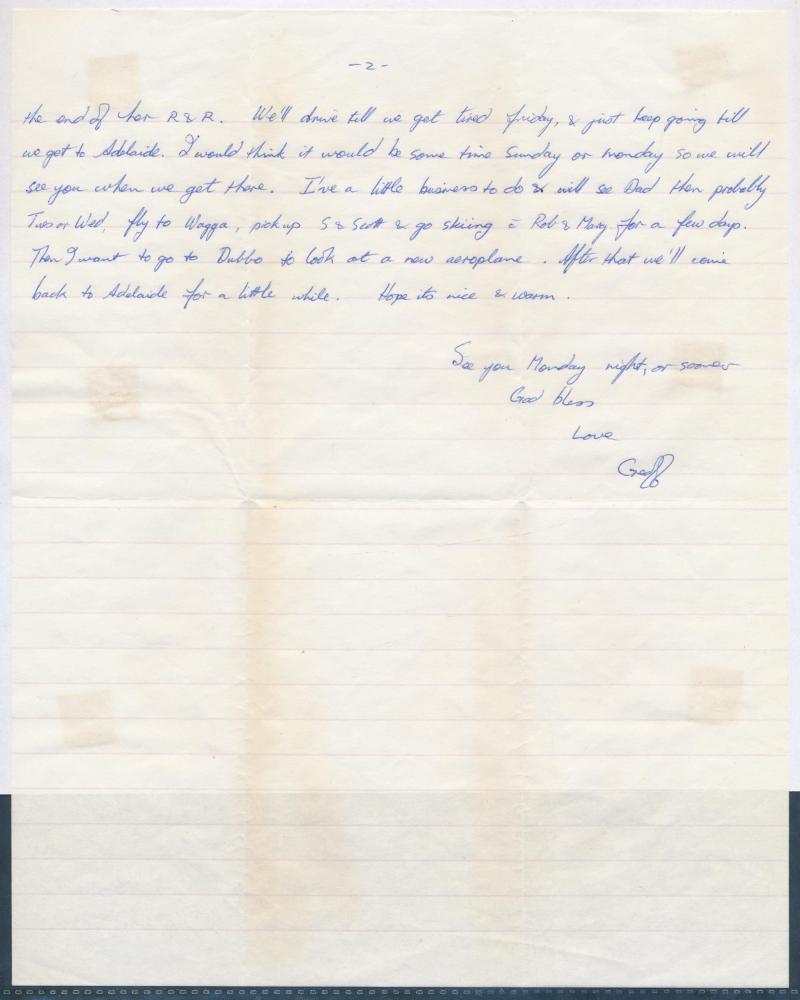 -2-
the end of her R & R. We'll drive till we get tired friday, & just keep going till
we get to Adelaide. I would think it would be some time Sunday or monday so we will
see you when we get there. I've a little business to do & will see Dad then probably
Tues or Wed, fly to Wagga, pick up S & Scott & go skiing = Rob & Mary for a few days.
Then I want to go to Dubbo to look at a new aeroplane. After that we'll come
back to Adelaide for a little while. Hope its nice & warm.
See you Monday night, or sooner
God bless
Love
Geoff